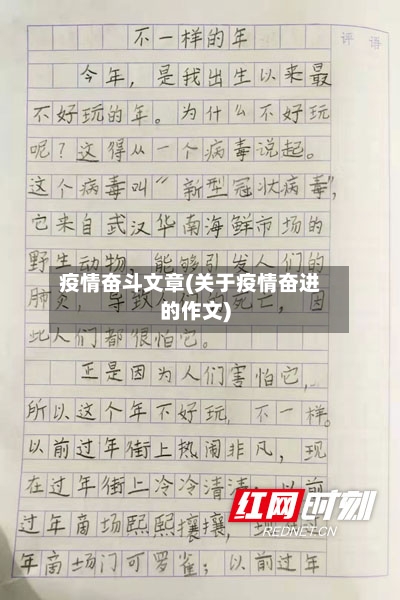 不一样的年
评语
今年，是我出生以来最
不好玩的年。为什么不好玩
呢？这得从一个病毒说起。
这个病毒叫“新型冠状病毒”，
它来自武汉华南海鲜市场的
野生动物，能够引发人们的
肺炎，导致人们的死亡，因
疫情奋斗文章(关于疫情奋进
的作文)
此人们都很怕它。
正是因为人们害怕它，
所以这个年不好玩，不一样。
以前过年街上热闹非凡，现
在过年街上冷冷清清；以前
过年商场熙熙攘攘，
年商场门可罗雀；以前过年
红网时刻
REDNET.CN